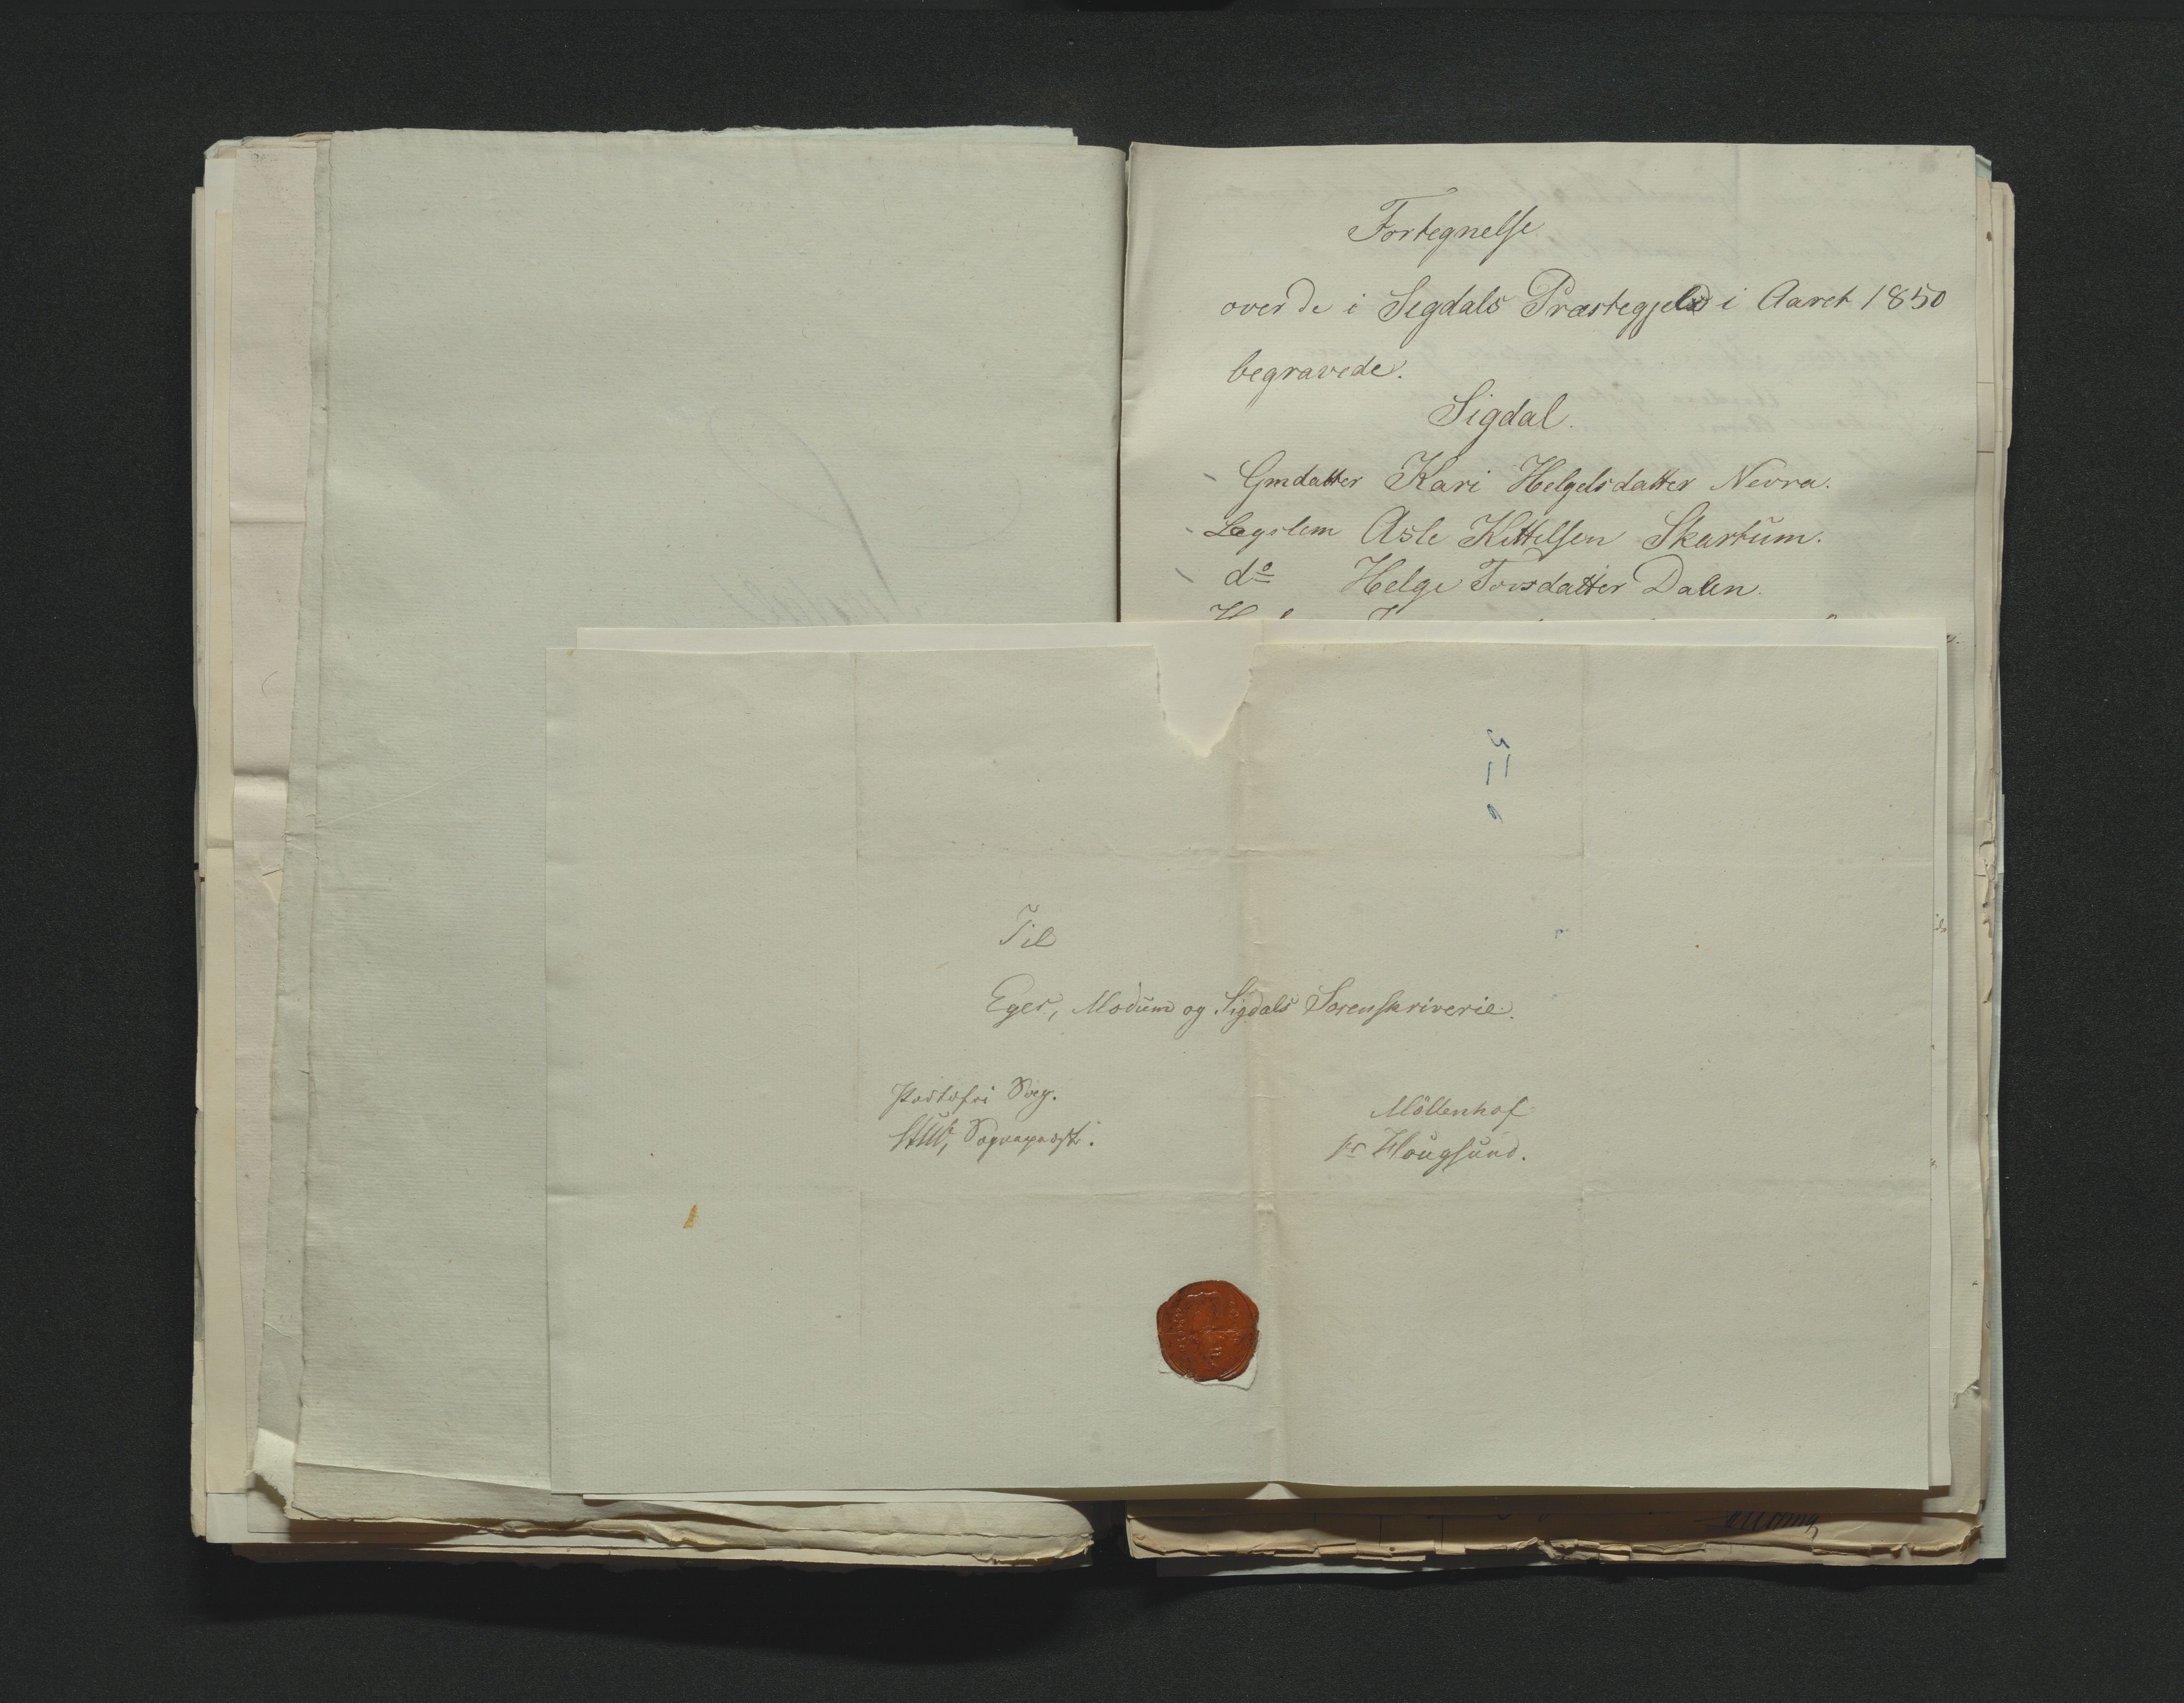 Fortegnelse
over de i Sigdals Præstegjeld i Aaret 1850
begravede.
Sigdal.
Gmdatter Kari Helgelsdatter Nevra.
Lægslem Asle Kittelsen Skartum.
do Helge Torsdatter Dalen.
Til
Eger, Modum og Sigdals Sorenskriverie.
Portofri Sag.
Stub, Sognepræst.
Möllenhof
pr Hougsund.